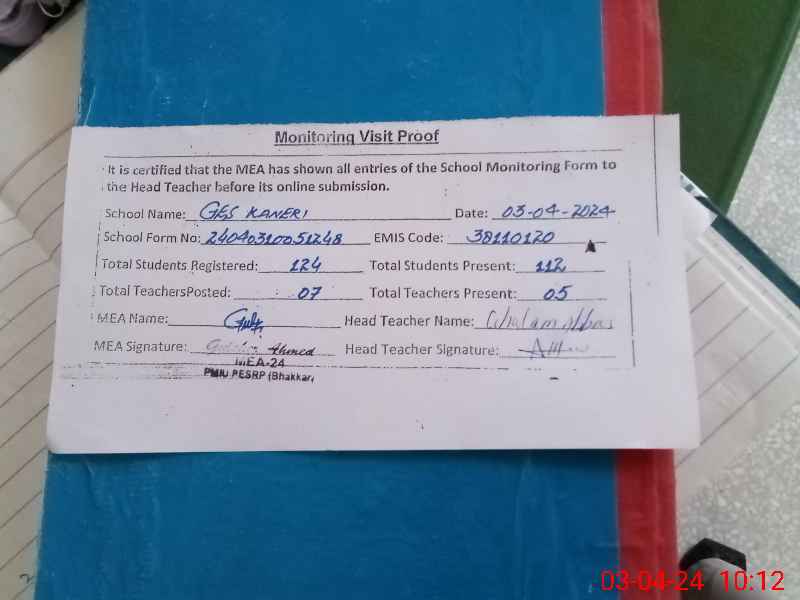 Monitoring Visit Proof
It is certified that the MEA has shown all entries of the School Monitoring Form to
the Head Teacher before its online submission.
School Name: GES KANERI Date: 03-04-2024
School Form No: 24040310051248 EMIS Code: 38110120
Total Students Registered: 124 Total Students Present: 112
Total TeachersPosted: 07 Total Teachers Present: 05
MEA Name: Head Teacher Name: Ghulam Abbas
MEA Signature: Ahmed Head Teacher Signature:
MEA-24
PMIU PESRP (Bhakkar)
03-04-24 10:12